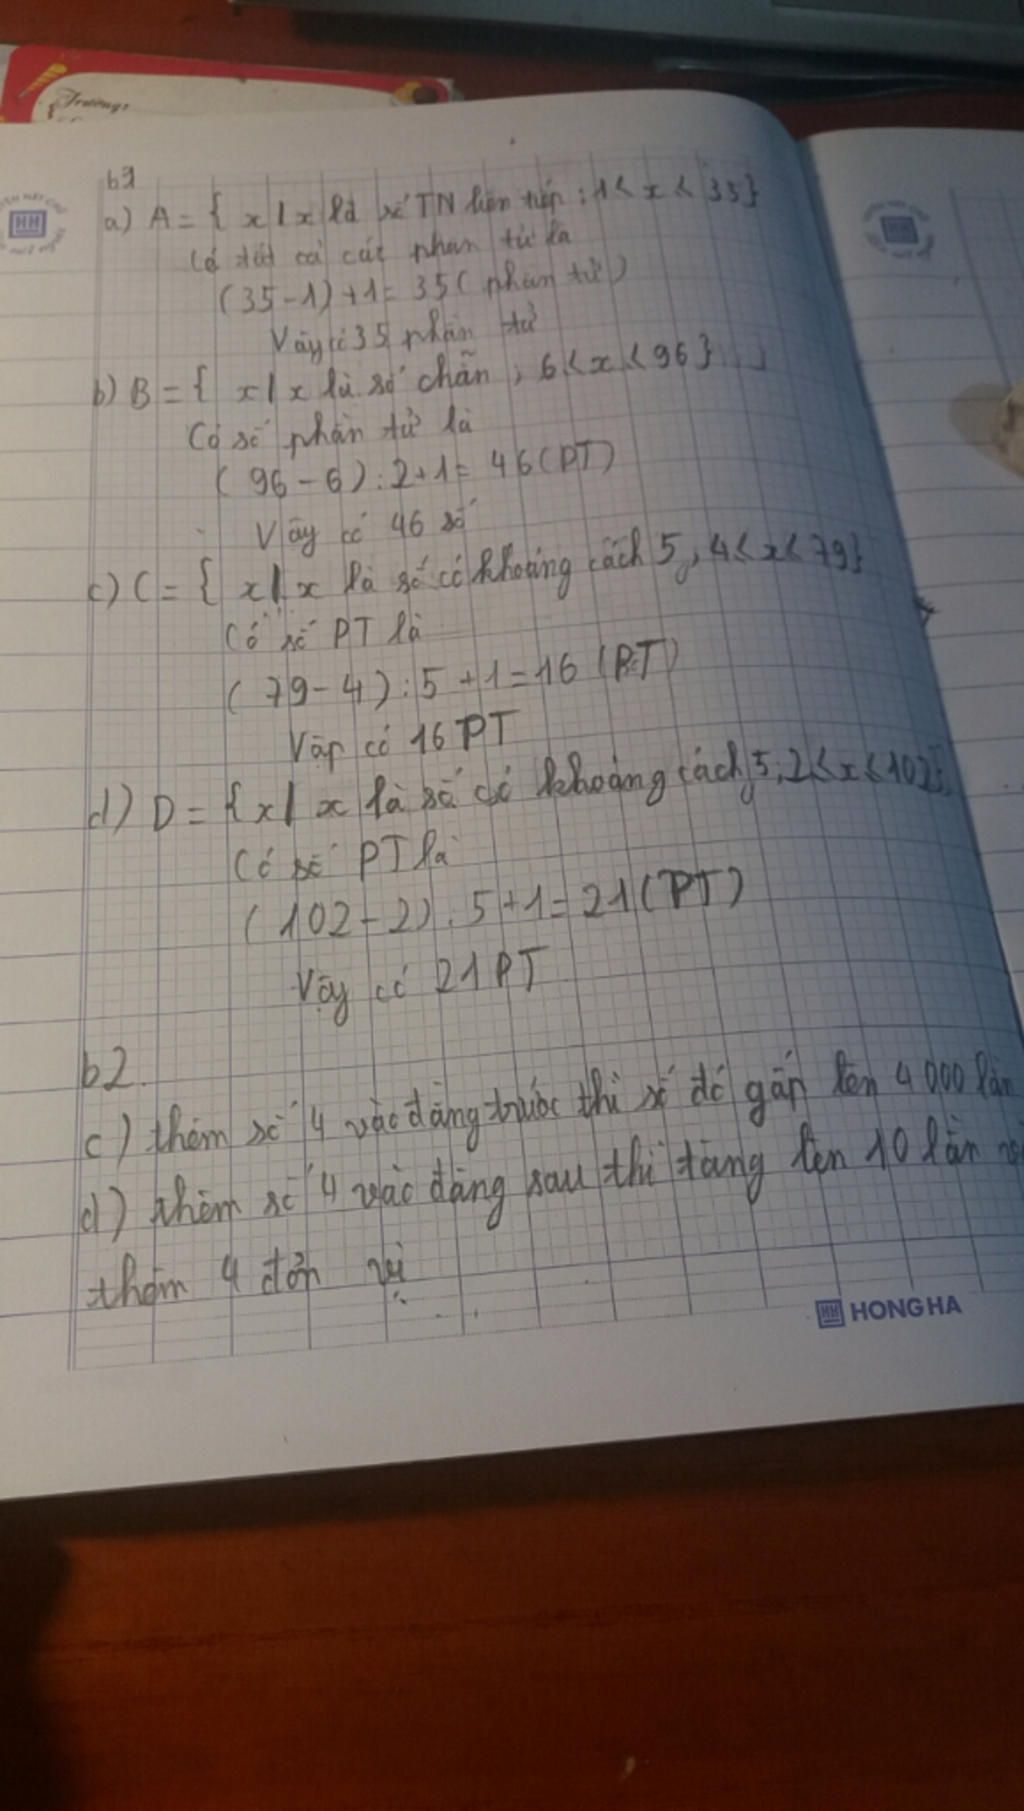 Trường:
b3
a) A = { x | x là số TN liên tiếp ; 1 < x < 35}
Có tất cả các phần tử là
(35 - 1) + 1 = 35 ( phần tử )
Vậy có 35 phần tử
b) B = { x | x là số chẵn ; 6 < x < 96 }
Có số phần tử là
( 96 - 6 ) : 2 + 1 = 46 (PT)
Vậy có 46 số
c) C = { x | x là số có khoảng cách 5, 4 < x < 79}
Có số PT là
( 79 - 4 ) : 5 + 1 = 16 (PT)
Vập có 16 PT
d) D = { x | x là số có khoảng cách 5, 2 < x < 102}
Có số PT là
( 102 - 2 ) : 5 + 1 = 21 (PT)
Vậy có 21 PT
b2.
c) thêm số 4 vào đằng trước thì số đó gấp lên 4 000 lần
d) thêm số 4 vào đằng sau thì tăng lên 10 lần
thêm 4 đơn vị
HH HONG HA